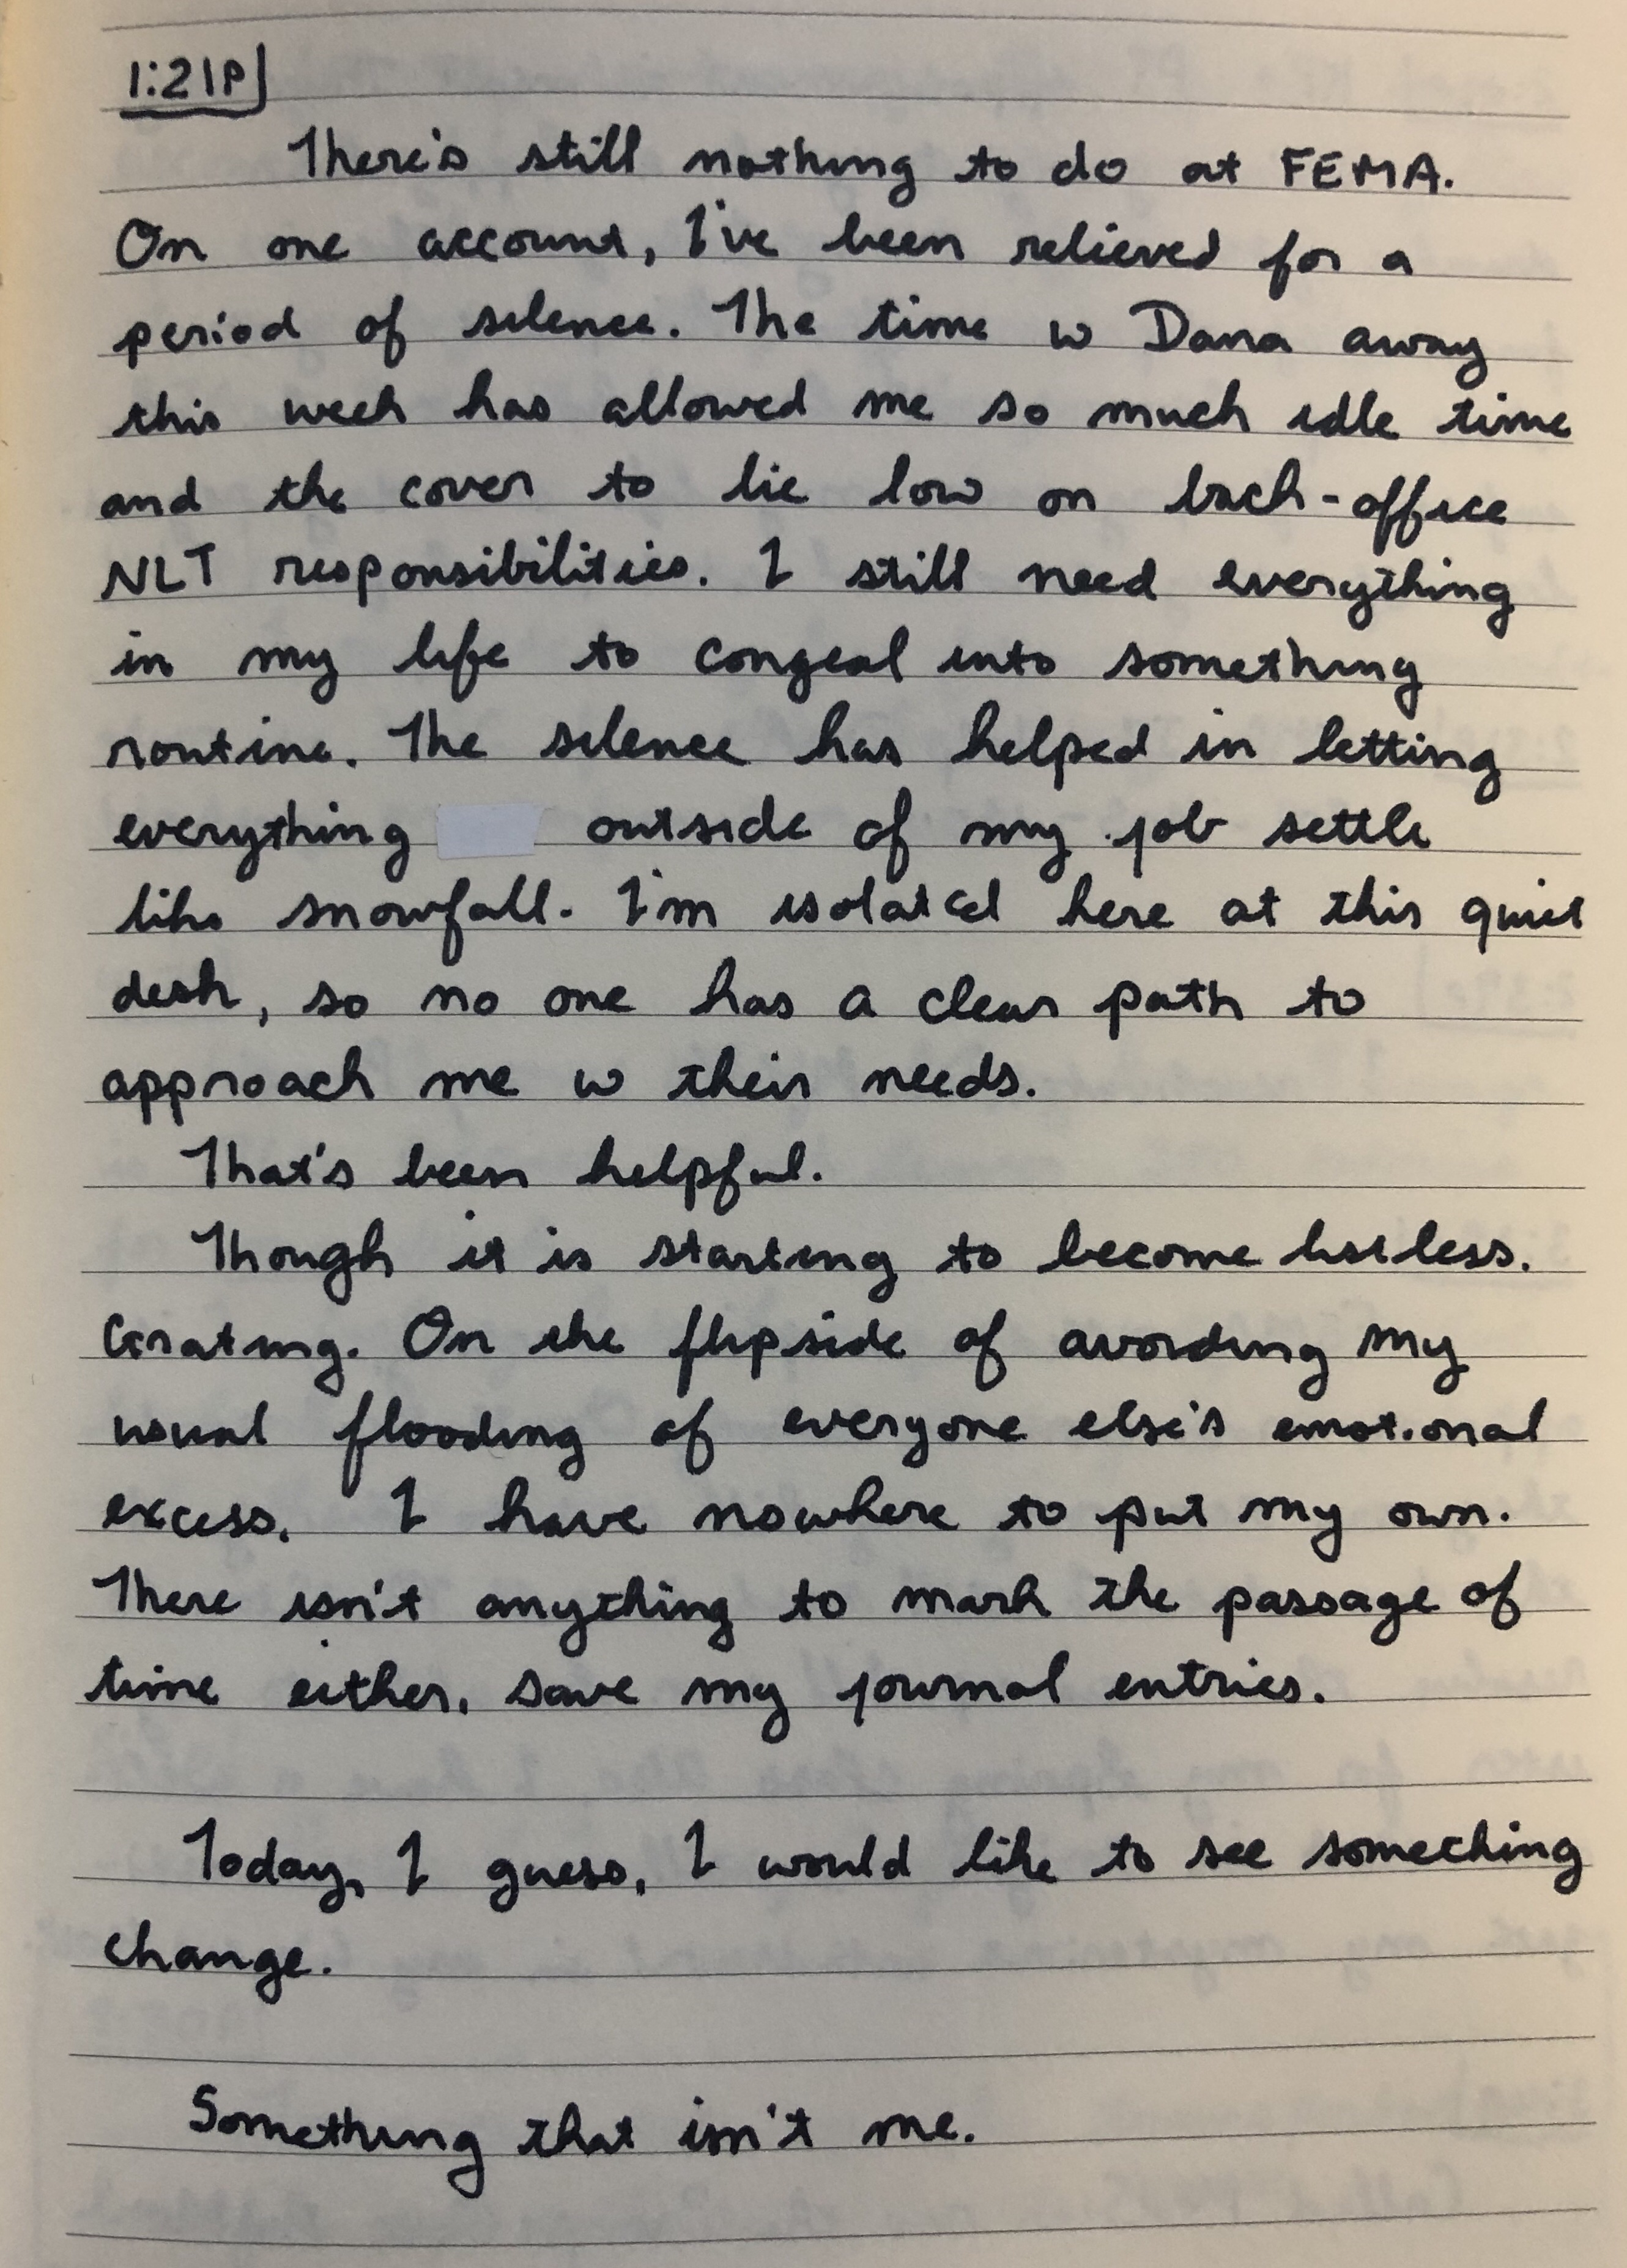 1:21P
There's still nothing to do at FEMA.
On one account, I've been relieved for a
period of silence. The time w Dana away
this week has allowed me so much idle time
and the cover to lie low on back-office
NLT responsibilities. I still need everything
in my life to congeal into something
routine. The silence has helped in letting
everything outside of my job settle
like snowfall. I'm isolated here at this quiet
desk, so no one has a clear path to
approach me w their needs.
That's been helpful.
Though it is starting to become listless.
Grating. On the flipside of avoiding my
usual flooding of everyone else's emotional
excess, I have nowhere to put my own.
There isn't anything to mark the passage of
time either, save my journal entries.
Today, I guess, I would like to see something
change.
Something that isn't me.